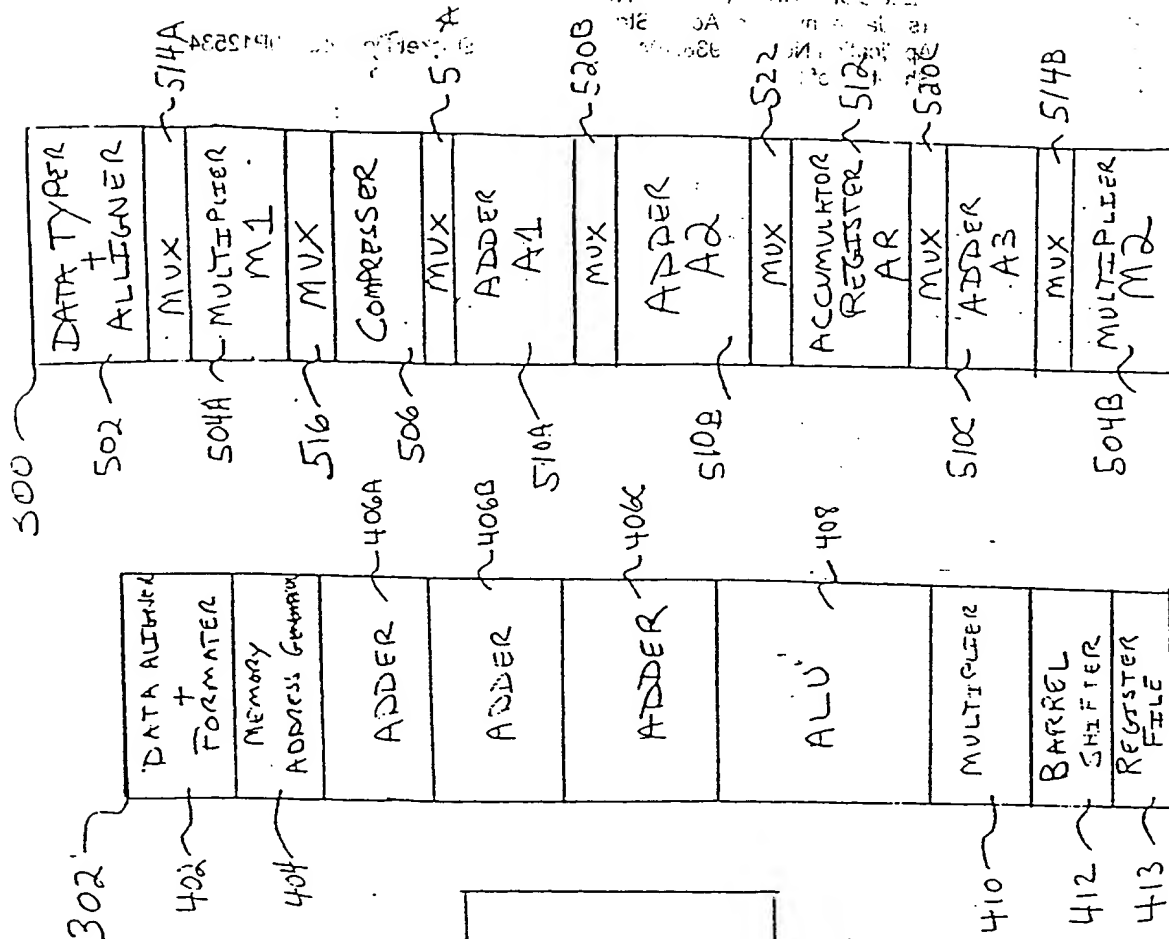 514A
520B
522
512
520C
514B
300
DATA TYPER
+
ALLIGNER
MUX
MULTIPLIER
M1
MUX
COMPRESSER
MUX
ADDER
A1
MUX
ADDER
A2
MUX
ACCUMULATOR
REGISTER
AR
MUX
ADDER
A3
MUX
MULTIPLIER
M2
502
504A
516
506
510A
510B
510C
504B
302
DATA ALIGNER
+
FORMATER
MEMORY
ADDRESS
ADDER
ADDER
ADDER
ALU
MULTIPLIER
BARREL
SHIFTER
REGISTER
FILE
406A
406B
406C
408
402
404
410
412
413